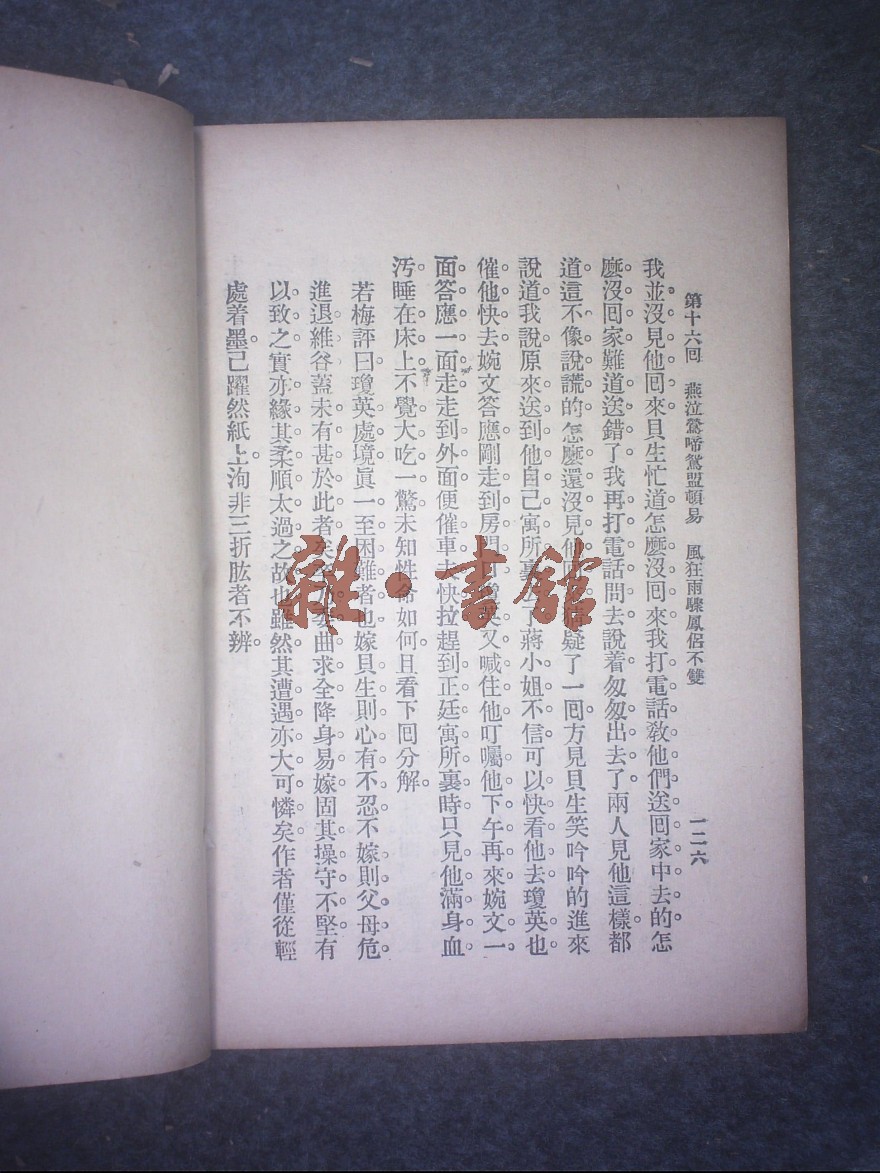 第十六回 燕泣鶯啼鴛盟頓易 風狂雨驟鳳侶不雙 一二六
我並沒見他回來貝生忙道怎麼沒回來我打電話教他們送回家中去的怎
麼沒回家難道送錯了我再打電話問去說着匆匆出去了兩人見他這樣都
道這不像說謊的怎麼還沒見他回 猜疑了一回方見貝生笑吟吟的進來
說道我說原來送到他自己寓所裏 了蔣小姐不信可以快看他去瓊英也
催他快去婉文答應剛走到房門 又喊住他叮囑他下午再來婉文一
面答應一面走走到外面便催車夫快拉趕到正廷寓所裏時只見他滿身血
汚睡在床上不覺大吃一驚未知性命如何且看下回分解
若梅評曰瓊英處境眞一至困難者也嫁貝生則心有不忍不嫁則父母危
進退維谷蓋未有甚於此者矣 曲求全降身易嫁固其操守不堅有
以致之實亦緣其柔順太過之故也雖然其遭遇亦大可憐矣作者僅從輕
處着墨已躍然紙上洵非三折肱者不辨
雜·書館